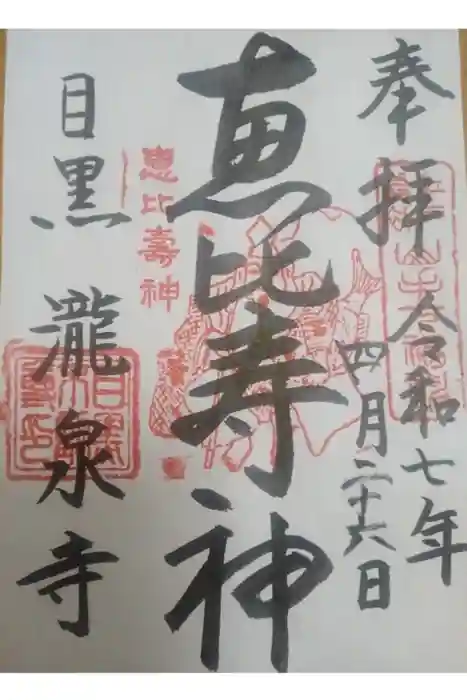 奉拝
令和七年
四月二十六日
恵比寿神
恵比壽神
目黒
瀧泉寺